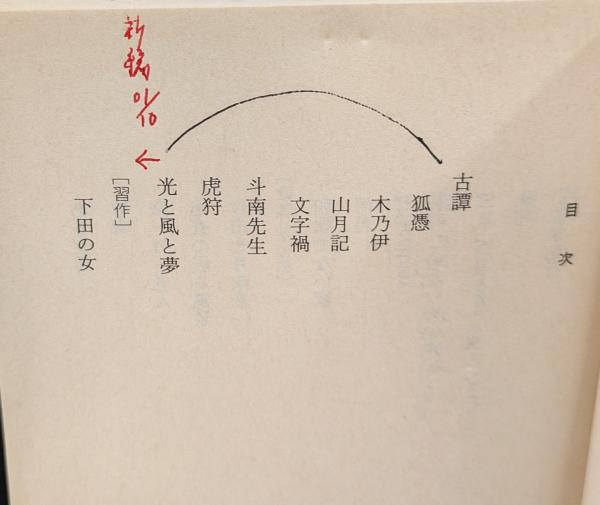 目次
古譚
狐憑
木乃伊
山月記
文字禍
斗南先生
虎狩
光と風と夢
［習作］
下田の女
01/10